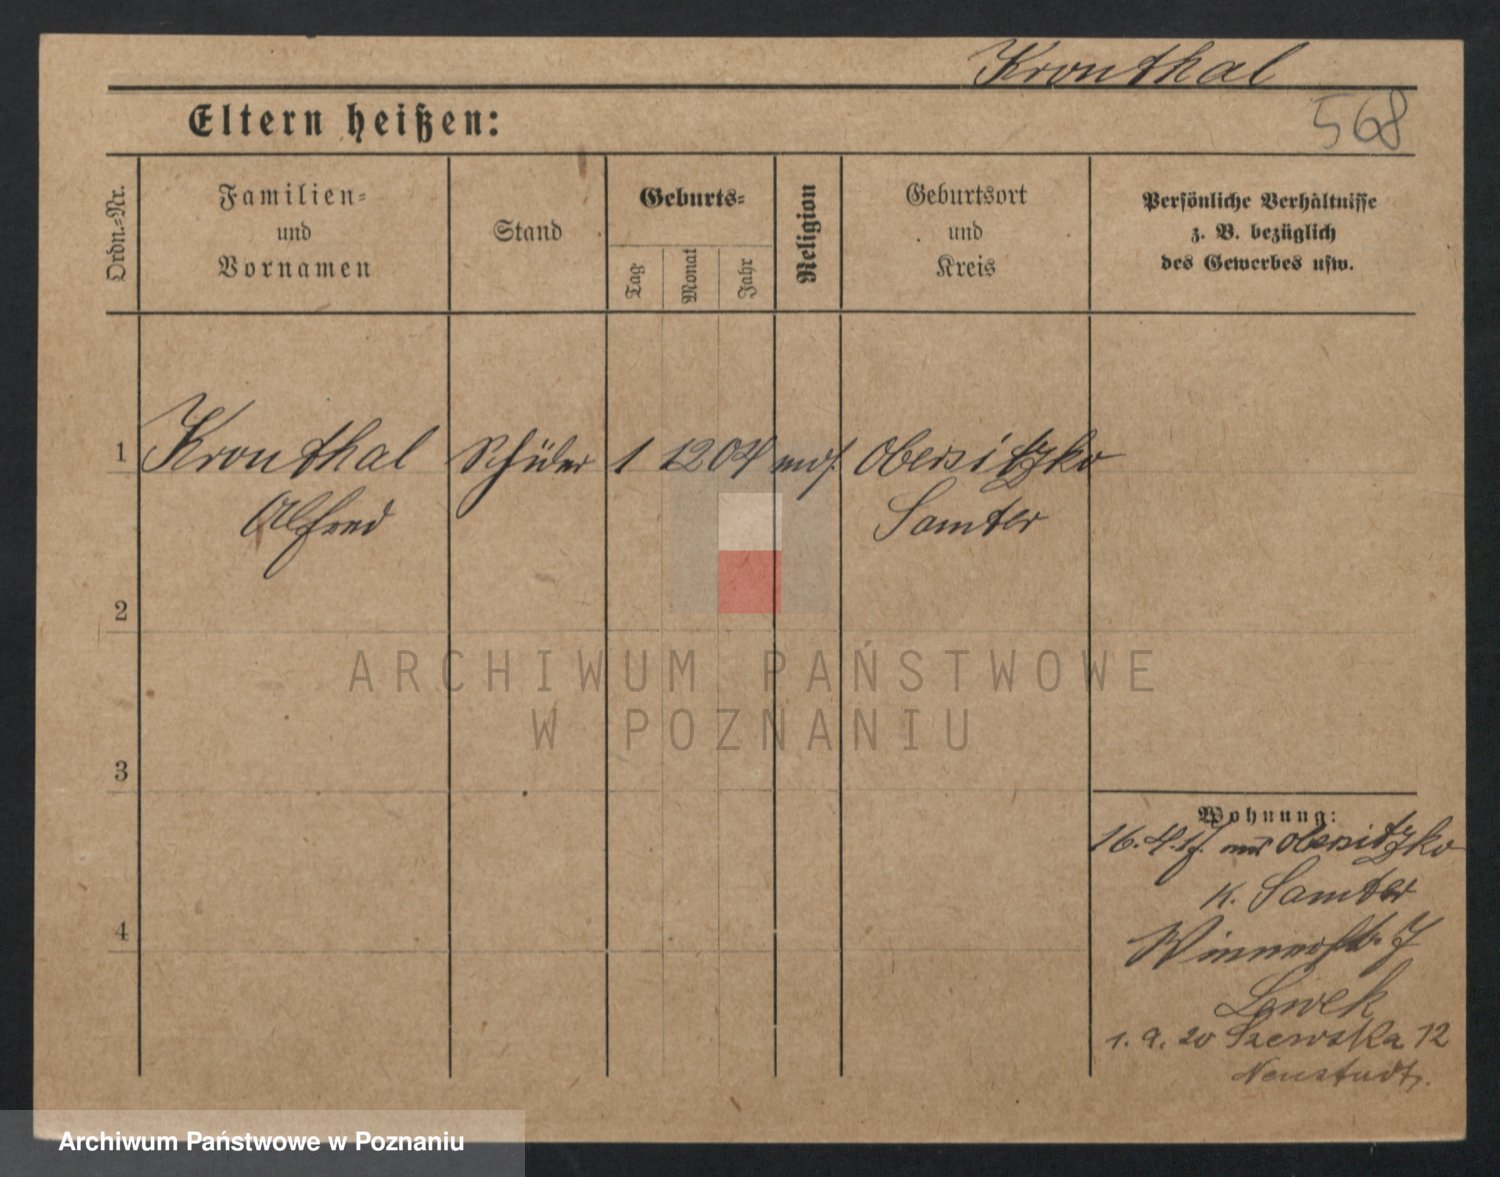 Kronthal
568
Eltern heißen:
Ordn.-Nr.
Familien-
und
Vornamen
Stand
Geburts-
Tag
Monat
Jahr
Religion
Geburtsort
und
Kreis
Persönliche Verhältnisse
z. B. bezüglich
des Gewerbes usw.
1 Kronthal Schüler 1 12 04 mos. Obersitzko
Alfred Samter
2
3
4
Wohnung:
16.4.17. aus Obersitzko
K. Samter
7
Lewek
1. 9. 20 Szewska 12
Neustadt.
ARCHIWUM PAŃSTWOWE
W POZNANIU
Archiwum Państwowe w Poznaniu